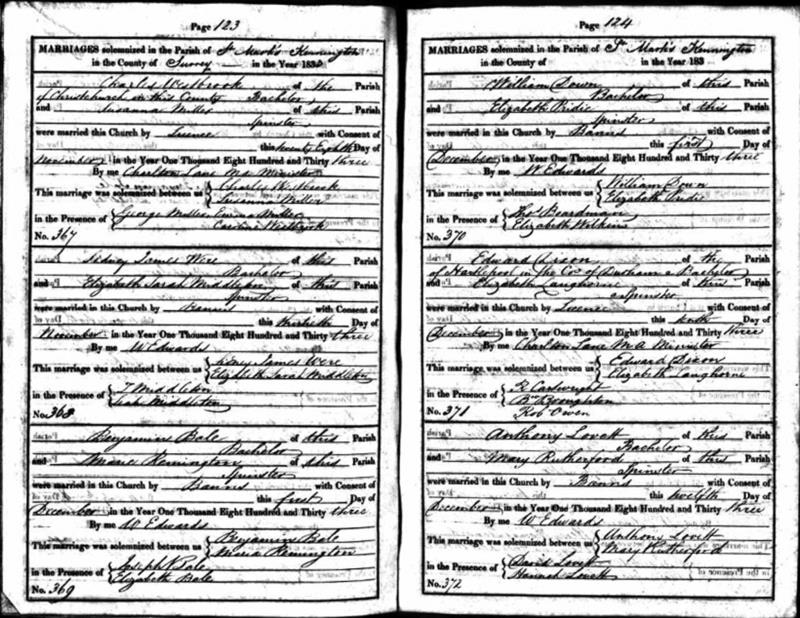 Page 123
MARRIAGES solemnized in the Parish of St. Mark's Kennington
in the County of Surrey in the Year 183
Charles Westbrook of the Parish
of Christchurch in this County Bachelor
and Susanna Miller of this Parish
Spinster
were married in this Church by Licence with Consent of
this twenty Eighth Day of
November in the Year One Thousand Eight Hundred and Thirty three
By me Charlton Lane MA Minister
This marriage was solemnized between us Charles Westbrook
Susanna Miller
in the Presence of George Miller Emma Miller
Caroline Westbrook
No. 367
Sidney James Were of this Parish
Bachelor
and Elizabeth Sarah Middleton of this Parish
Spinster
were married in this Church by Banns with Consent of
this thirtieth Day of
November in the Year One Thousand Eight Hundred and Thirty three
By me W Edwards
This marriage was solemnized between us Sidney James Were
Elizabeth Sarah Middleton
in the Presence of T Middleton
Middleton
No. 368
Benjamin Bale of this Parish
Bachelor
and Maria Remington of this Parish
Spinster
were married in this Church by Banns with Consent of
this first Day of
December in the Year One Thousand Eight Hundred and Thirty three
By me W Edwards
This marriage was solemnized between us Benjamin Bale
Maria Remington
in the Presence of Joseph Bale
Elizabeth Bale
No. 369
Page 124
MARRIAGES solemnized in the Parish of St. Mark's Kennington
in the County of in the Year 183
William Down of this Parish
Bachelor
and Elizabeth Pridie of this Parish
Spinster
were married in this Church by Banns with Consent of
this first Day of
December in the Year One Thousand Eight Hundred and Thirty three
By me W Edwards
This marriage was solemnized between us William Down
Elizabeth Pridie
in the Presence of Thos Boardman
Elizabeth Wilkins
No. 370
Edward Dixon of the Parish
of Hartlepool in the Co. of Durham a Bachelor
and Elizabeth Langhorne of this Parish
a Spinster
were married in this Church by Licence with Consent of
this tenth Day of
December in the Year One Thousand Eight Hundred and Thirty three
By me Charlton Lane M.A. Minister
This marriage was solemnized between us Edward Dixon
Elizabeth Langhorne
in the Presence of R Cartwright
Broughton
Rob Owen
No. 371
Anthony Lovett of this Parish
Bachelor
and Mary Rutherford of this Parish
Spinster
were married in this Church by Banns with Consent of
this twelfth Day of
December in the Year One Thousand Eight Hundred and Thirty three
By me W Edwards
This marriage was solemnized between us Anthony Lovett
Mary Rutherford
in the Presence of David Lovett
Hannah Lovett
No. 372